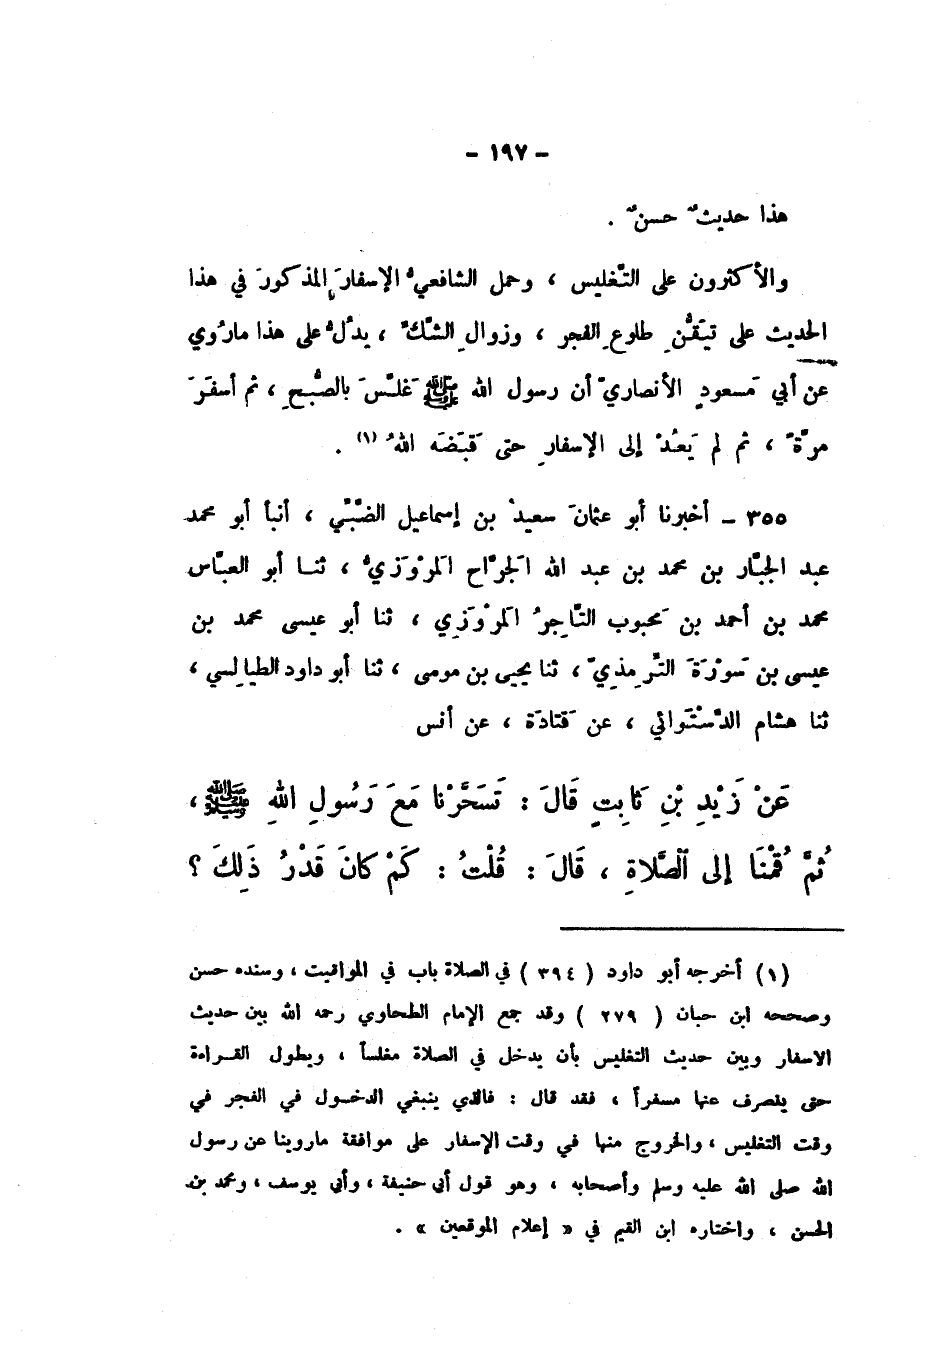 - ١٩٧ -
هذا حديثٌ حسنٌ .
والأكثرون على التَّغليس ، وحمل الشافعيُّ الإسفارَ المذكورَ في هذا
الحديث على تيَقُّنِ طلوعِ الفجر ، وزوالِ الشَّكِّ ، يدُلُّ على هذا ما رُوي
عن أبي مَسعودٍ الأنصاريّ أن رسول الله ﷺ غَلَّسَ بالصُّبحِ ، ثم أسفَرَ
مرَّةً ، ثم لم يَعُدْ إلى الإسفارِ حتى قَبَضَه اللهُ (١) .
٣٥٥ - أخبرنا أبو عثمانَ سعيدُ بن إسماعيل الضَّبِّي ، أنبأ أبو محمد
عبد الجبَّار بن محمد بن عبد الله الجَرَّاح المَرْوَزيُّ ، ثنا أبو العبَّاس
محمد بن أحمد بن مَحبوب التَّاجِرُ المَرْوَزِي ، ثنا أبو عيسى محمد بن
عيسى بن سَوْرَةَ التِّرمِذيّ ، ثنا يحيى بن موسى ، ثنا أبو داود الطيالِسي ،
ثنا هشام الدَّسْتَوائي ، عن قَتادَة ، عن أنس
عَنْ زَيْدِ بْنِ ثَابِتٍ قَالَ : تَسَحَّرْنَا مَعَ رَسُولِ اللهِ ﷺ ،
ثُمَّ قُمْنَا إلى الصَّلاةِ ، قَالَ : قُلْتُ : كَمْ كانَ قَدْرُ ذَلِكَ ؟
(١) أخرجه أبو داود ( ٣٩٤ ) في الصلاة باب في المواقيت ، وسنده حسن
وصححه ابن حبان ( ٢٧٩ ) وقد جمع الإمام الطحاوي رحمه الله بين حديث
الاسفار وبين حديث التغليس بأن يدخل في الصلاة مغلساً ، ويطول القراءة
حتى ينصرف عنها مسفراً ، فقد قال : فالذي ينبغي الدخول في الفجر في
وقت التغليس ، والخروج منها في وقت الإسفار على موافقة ماروينا عن رسول
الله صلى الله عليه وسلم وأصحابه ، وهو قول أبي حنيفة ، وأبي يوسف ، ومحمد بن
الحسن ، واختاره ابن القيم في « إعلام الموقعين » .